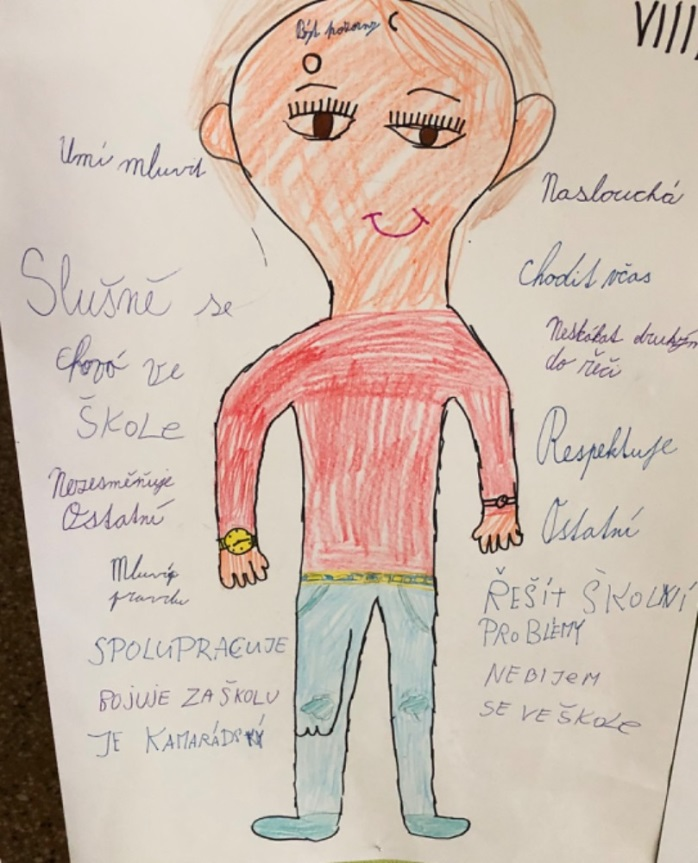 VIII
Být pozorný
Umí mluvit
Slušně se
chová ve
ŠKOLE
Nezesměňuje
Ostatní
Mluvit
pravdu
SPOLUPRACUJE
BOJUJE ZA ŠKOLU
JE KAMARÁDSKÝ
Naslouchá
chodit včas
Neskákat druhým
do řeči
Respektuje
Ostatní
ŘEŠIT ŠKOLNÍ
PROBLÉMY
NEBIJEM
SE VE ŠKOLE